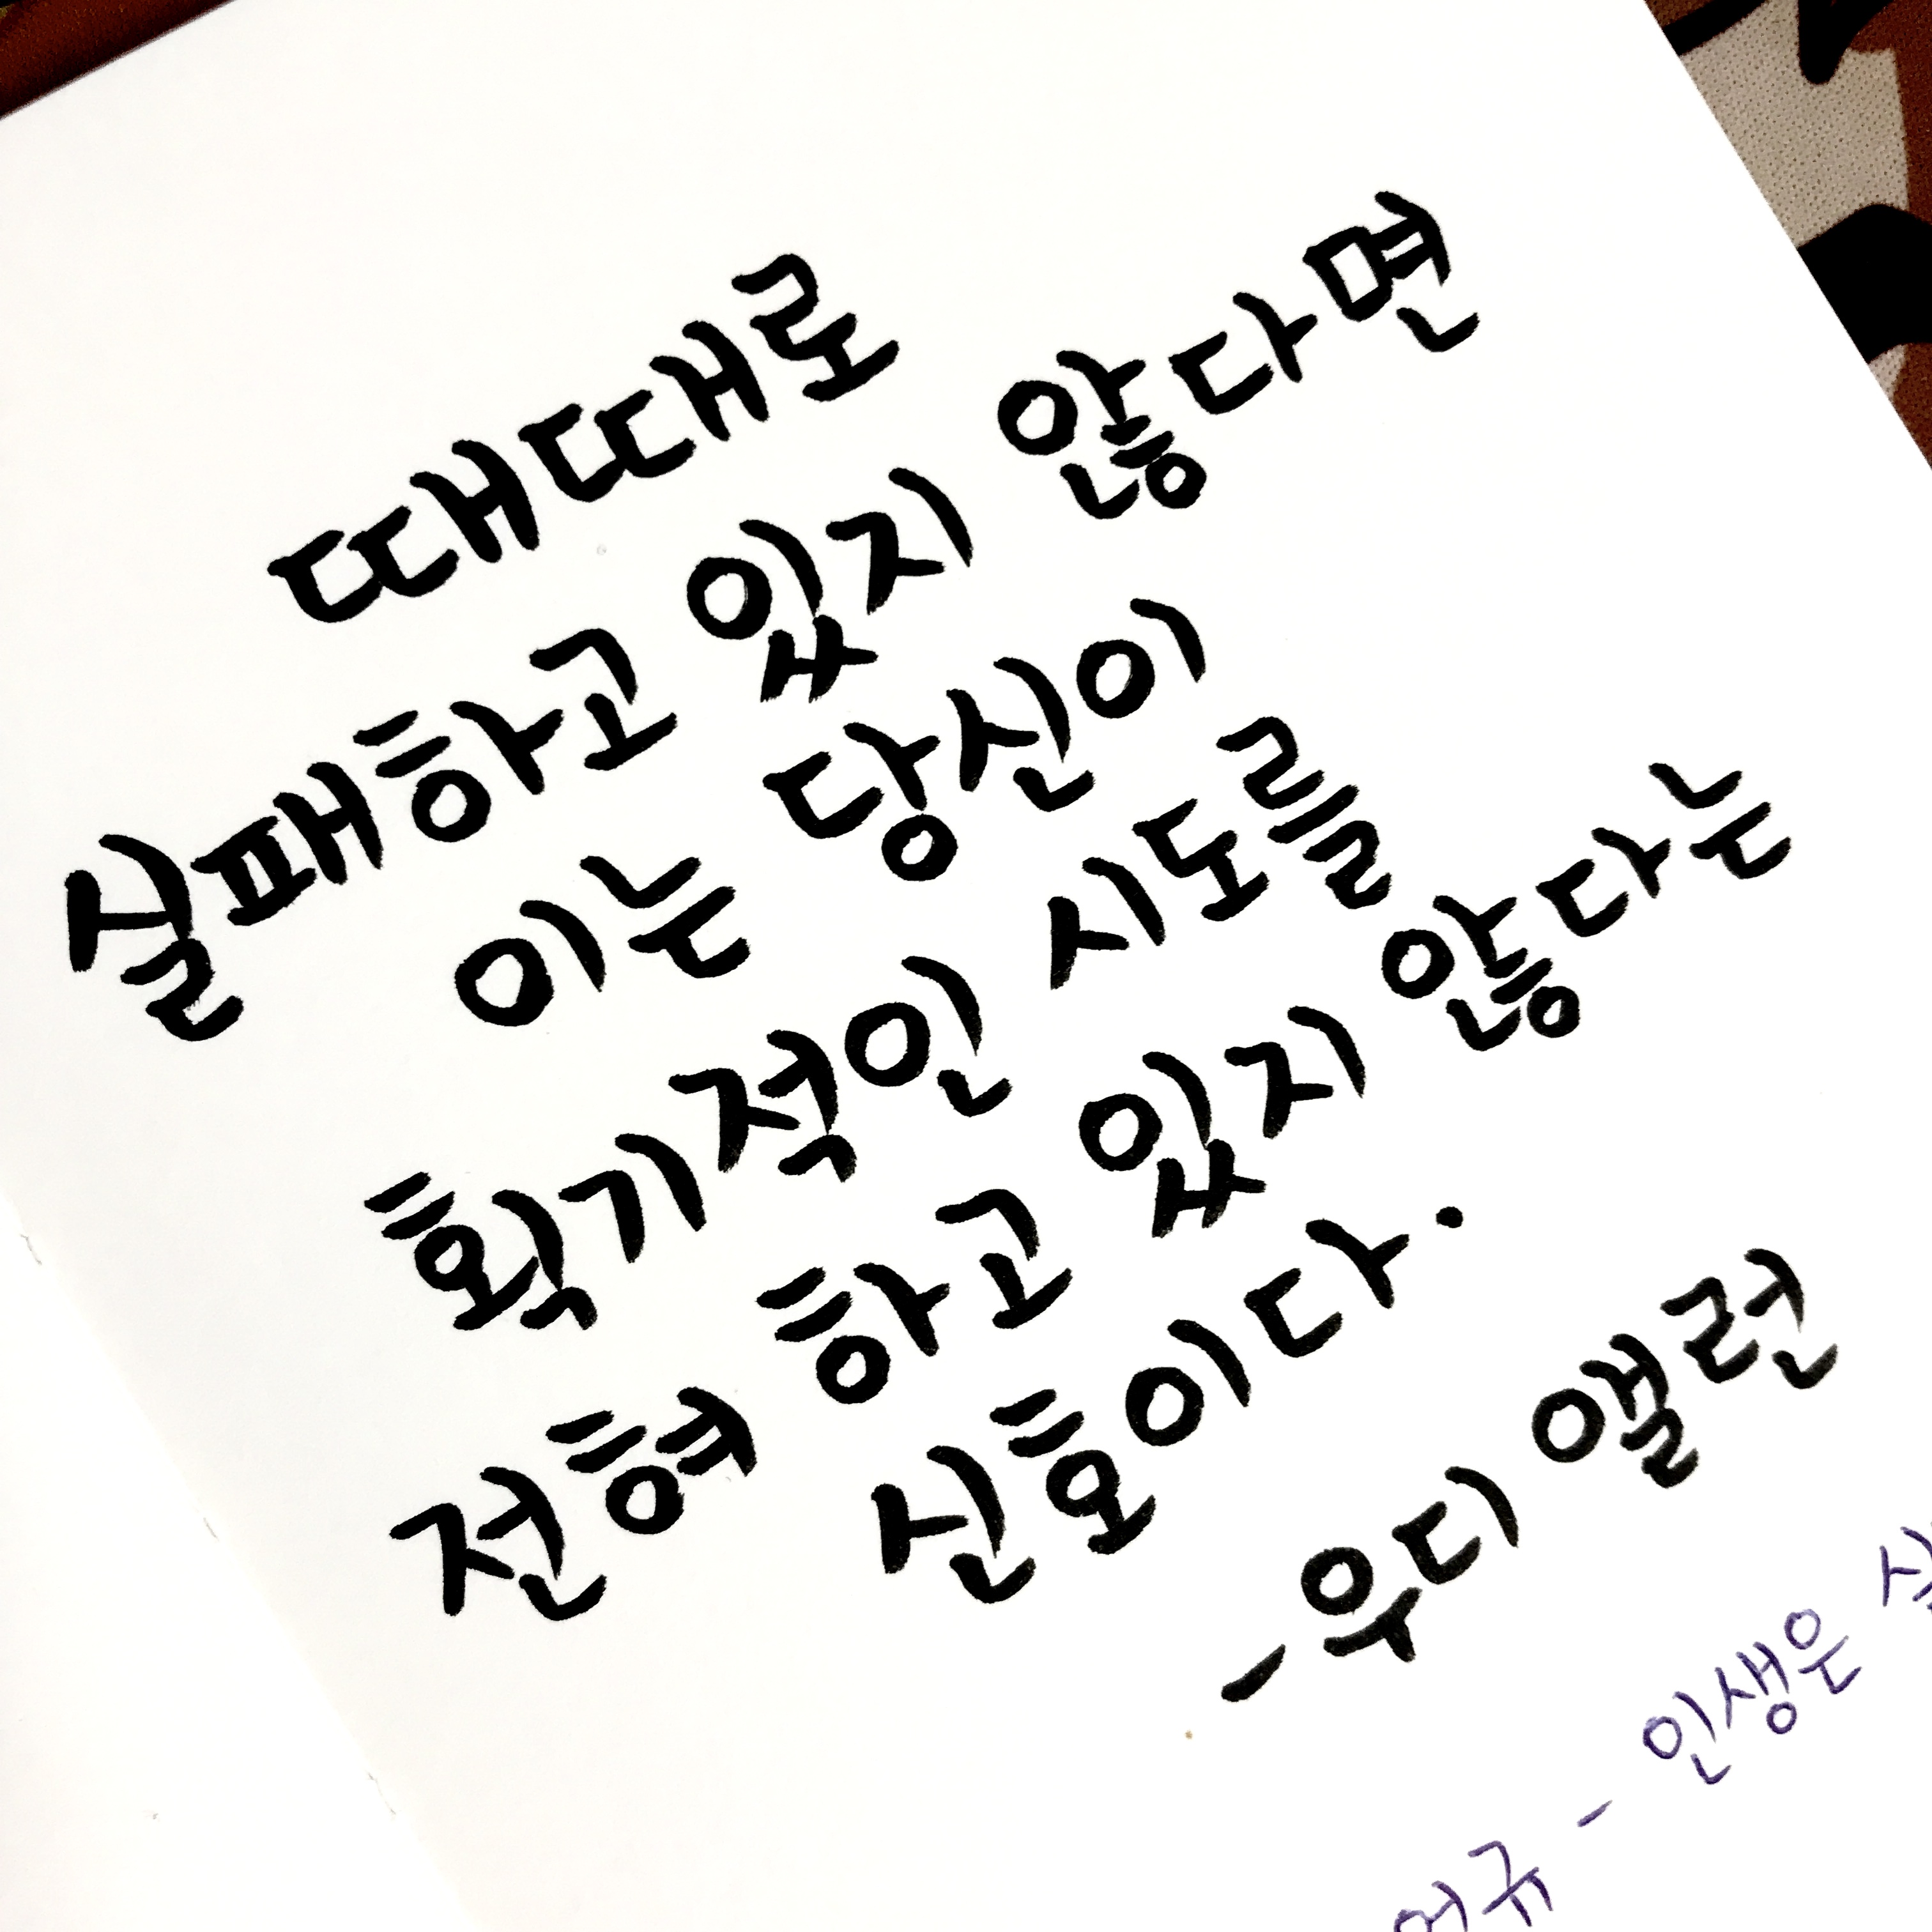 때때로
실패하고 있지 않다면
이는 당신이
획기적인 시도를
전혀 하고 있지 않다는
신호이다.
- 우디 앨런
- 인생은